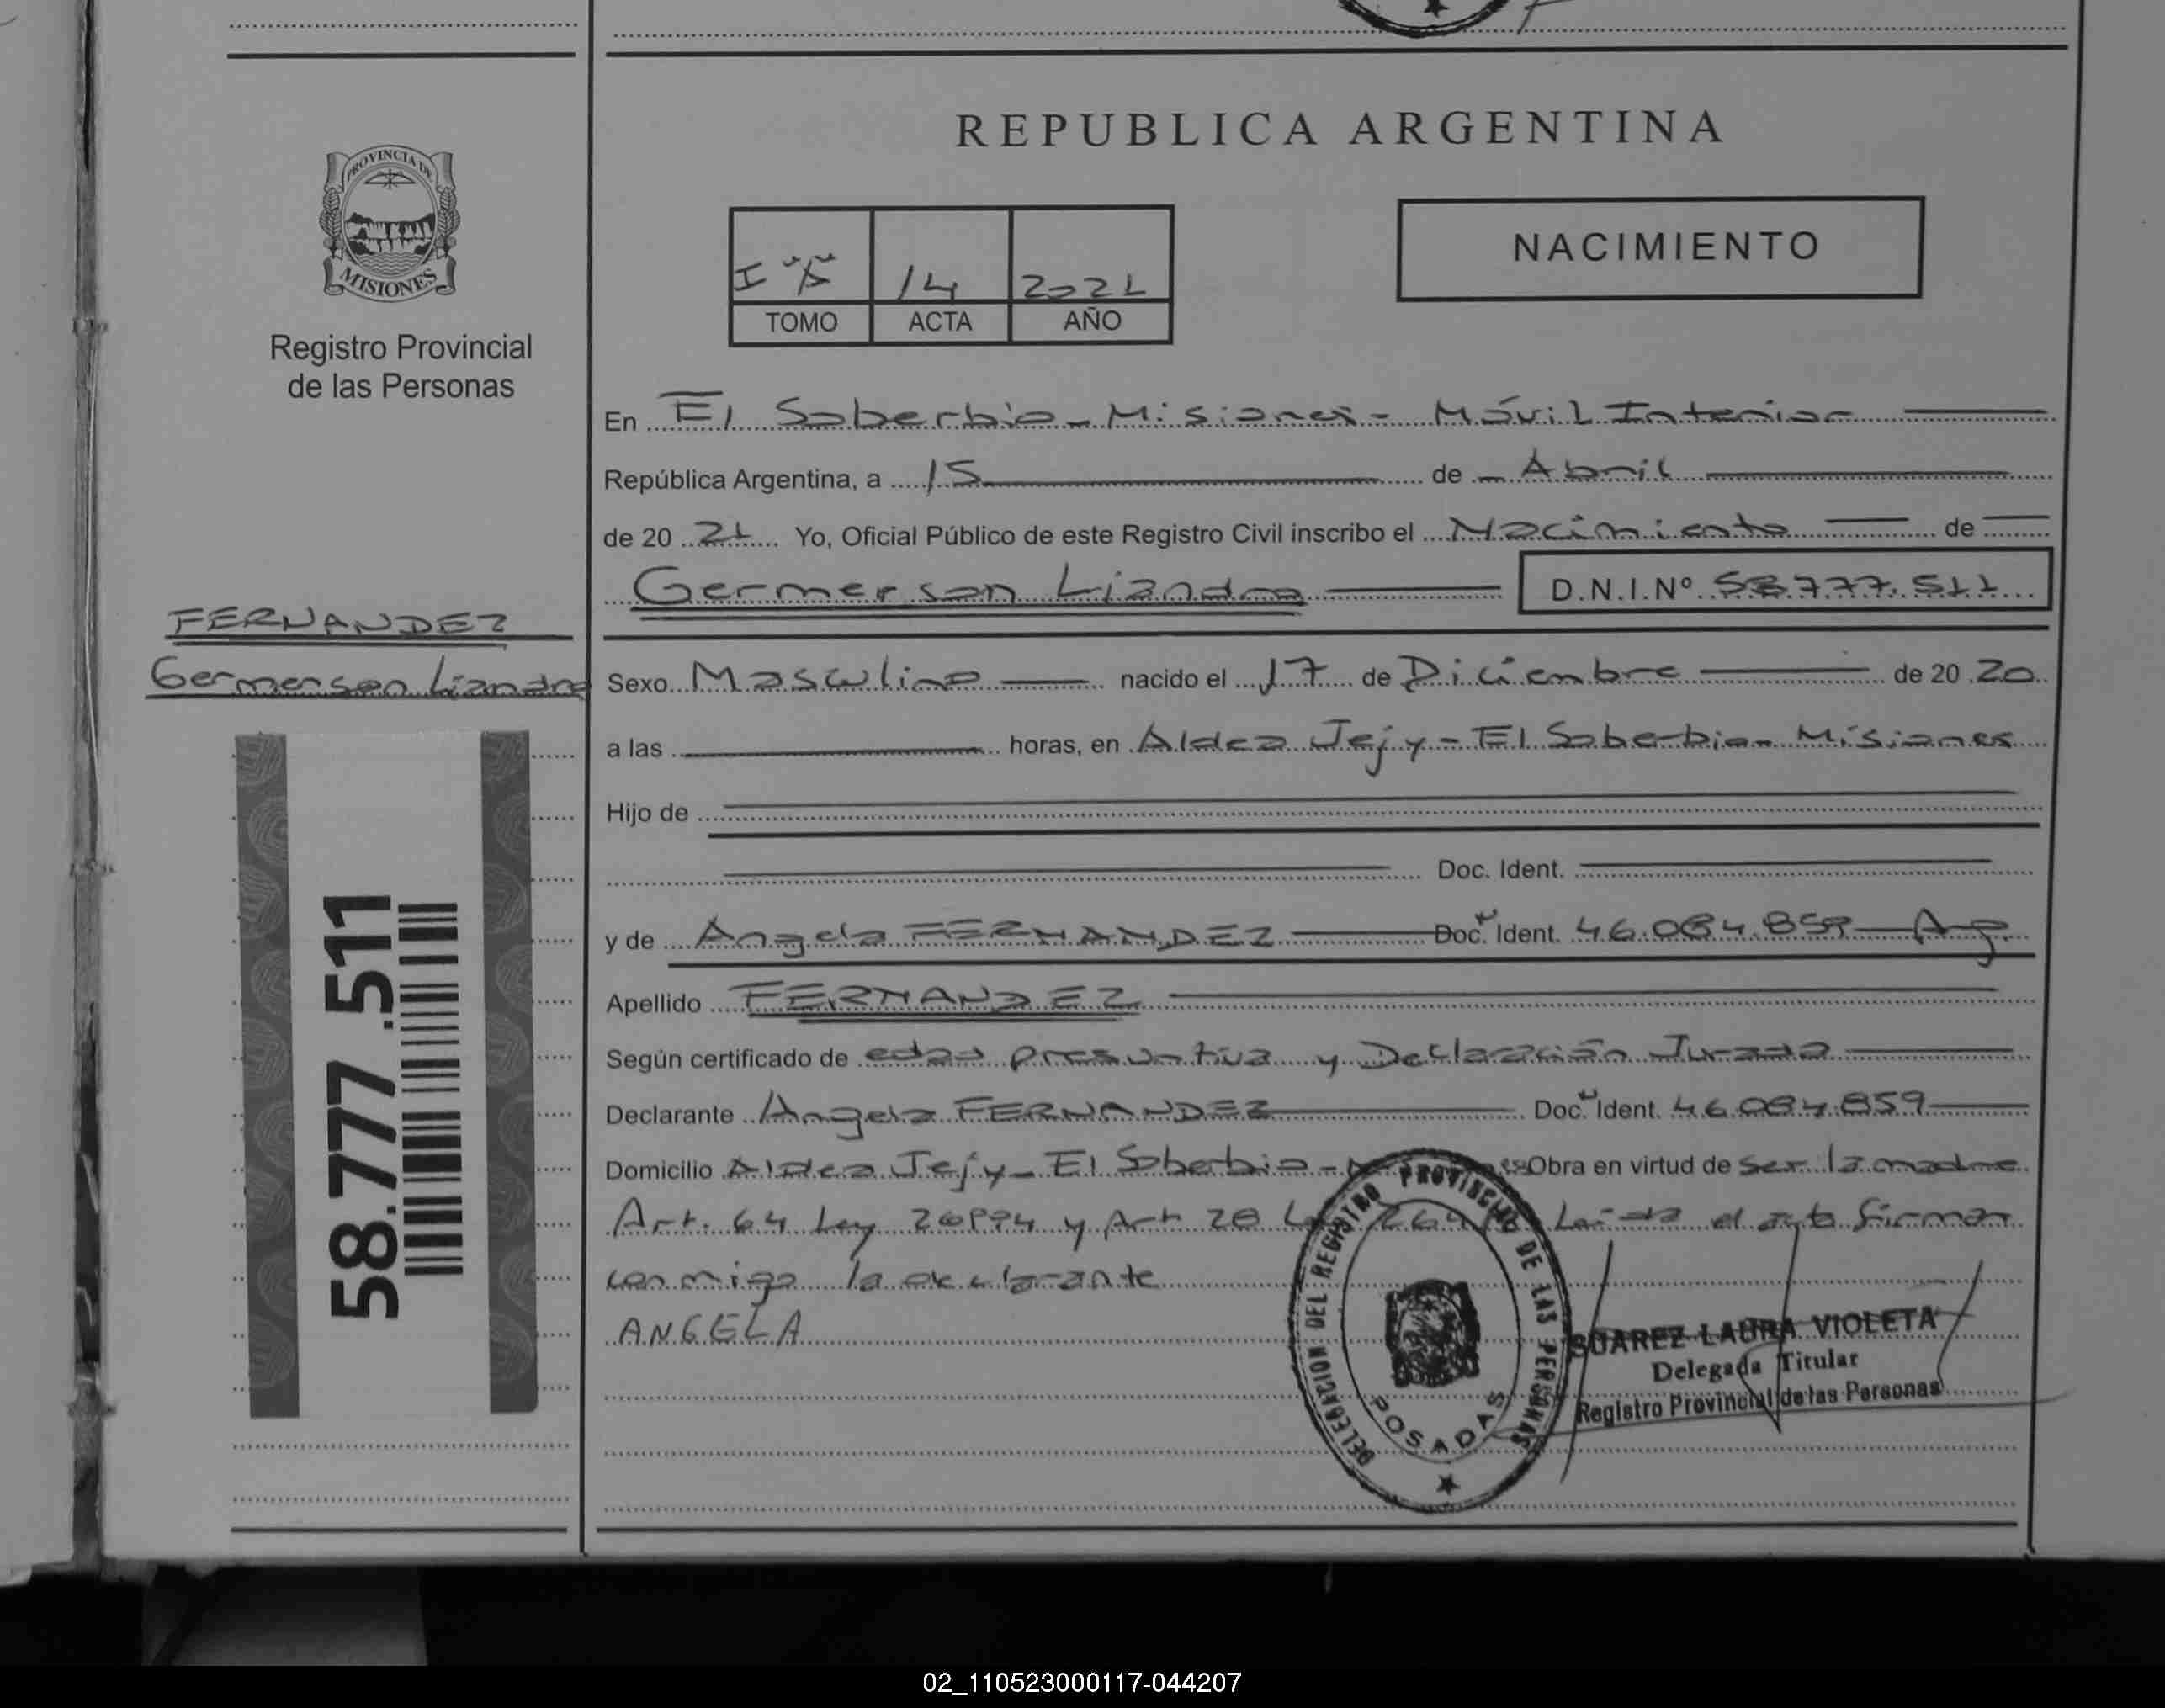 REPUBLICA ARGENTINA
PROVINCIA DE MISIONES
Registro Provincial
de las Personas
I "A" 14 2021
TOMO ACTA AÑO
NACIMIENTO
En El Soberbio - Misiones - Móvil Interior
República Argentina, a 15 de Abril
de 20 21 Yo, Oficial Público de este Registro Civil inscribo el Nacimiento de
Germerson Liandro D.N.I.Nº 58.777.511
FERNANDEZ
Germerson Liandro
Sexo Masculino nacido el 17 de Diciembre de 20 20
a las horas, en Aldea Jejy - El Soberbio - Misiones
Hijo de
Doc. Ident.
y de Angela FERNANDEZ Doc. Ident. 46.084.859 Arg.
Apellido FERNANDEZ
Según certificado de edad presuntiva y Declaración Jurada
Declarante Angela FERNANDEZ Doc. Ident. 46.084.859
Domicilio Aldea Jejy - El Soberbio - Obra en virtud de ser la madre
Art. 64 Ley 26994 y Art 28 Leída el acta firman
conmigo la declarante
ANGELA
58.777.511
DELEGACION DEL REGISTRO PROVINCIAL DE LAS PERSONAS
POSADAS
SUAREZ LAURA VIOLETA
Delegada Titular
Registro Provincial de las Personas
02_110523000117-044207